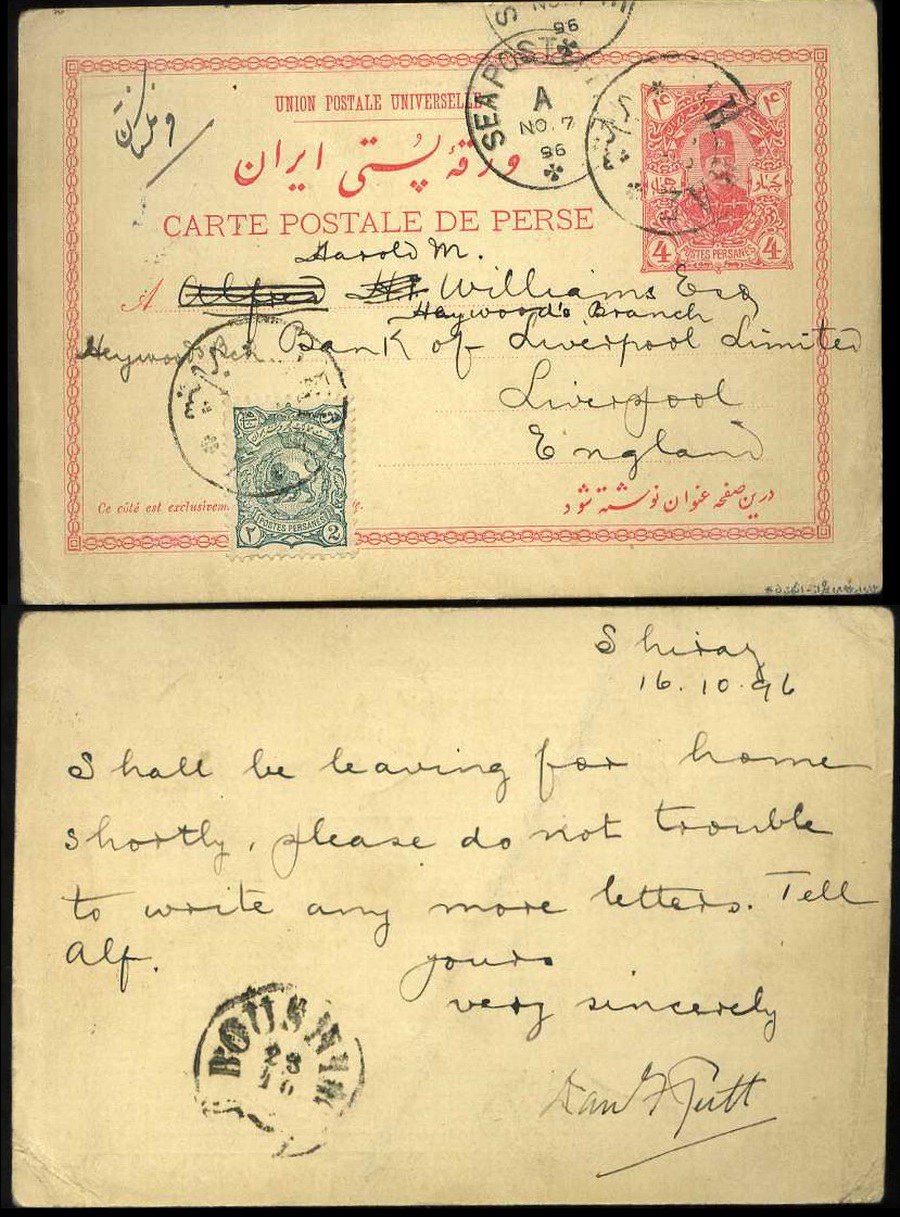 UNION POSTALE UNIVERSELLE
ورقهٔ پُستی ایران
CARTE POSTALE DE PERSE
SEA POST
A
NO. 7
96
NO. 7
96
شیراز
4 POSTES PERSANES 4
Harold M.
A Alfred H. Williams Esq
Haywood's Branch
Heywoods Bch. Bank of Liverpool Limited
Liverpool
England
شیراز
۲ POSTES PERSANES 2
Ce côté est exclusivem
درین صفحه عنوان نوشته شود
Shiraz
16.10.96
Shall be leaving for home
shortly, please do not trouble
to write any more letters. Tell
Alf. yours
very sincerely
BOUSHIR
23
10